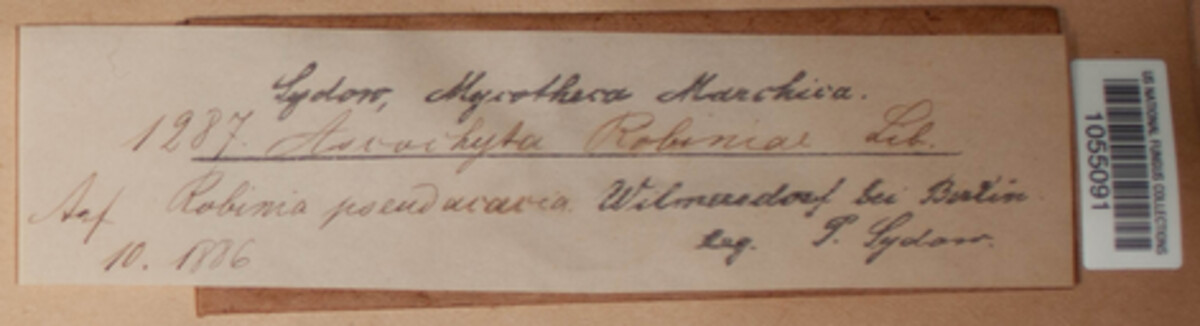 Sydow, Mycotheca Marchica.
1287. Ascochyta Robiniae Lib.
Auf Robinia pseudacacia. Wilmersdorf bei Berlin.
10. 1886 leg. P. Sydow.
US NATIONAL FUNGUS COLLECTIONS
1055091